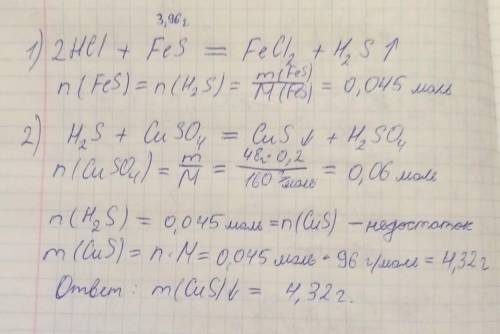 3,96г
1) 2HCl + FeS = FeCl₂ + H₂S ↑
n(FeS) = n(H₂S) = m(FeS)/M(FeS) = 0,045 моль
2) H₂S + CuSO₄ = CuS↓ + H₂SO₄
n(CuSO₄) = m/M = 48г·0,2/160 г/моль = 0,06 моль
n(H₂S) = 0,045 моль = n(CuS) – недостаток
m(CuS) = n·M = 0,045 моль · 96 г/моль = 4,32г
Ответ: m(CuS)↓ = 4,32г.